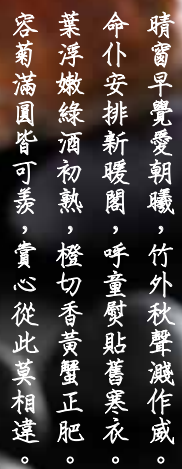 晴窗早覺愛朝曦，竹外秋聲漸作威。
命仆安排新暖閣，呼童熨貼舊寒衣。
葉浮嫩綠酒初熟，橙切香黃蟹正肥。
容菊滿圓皆可羨，賞心從此莫相違。